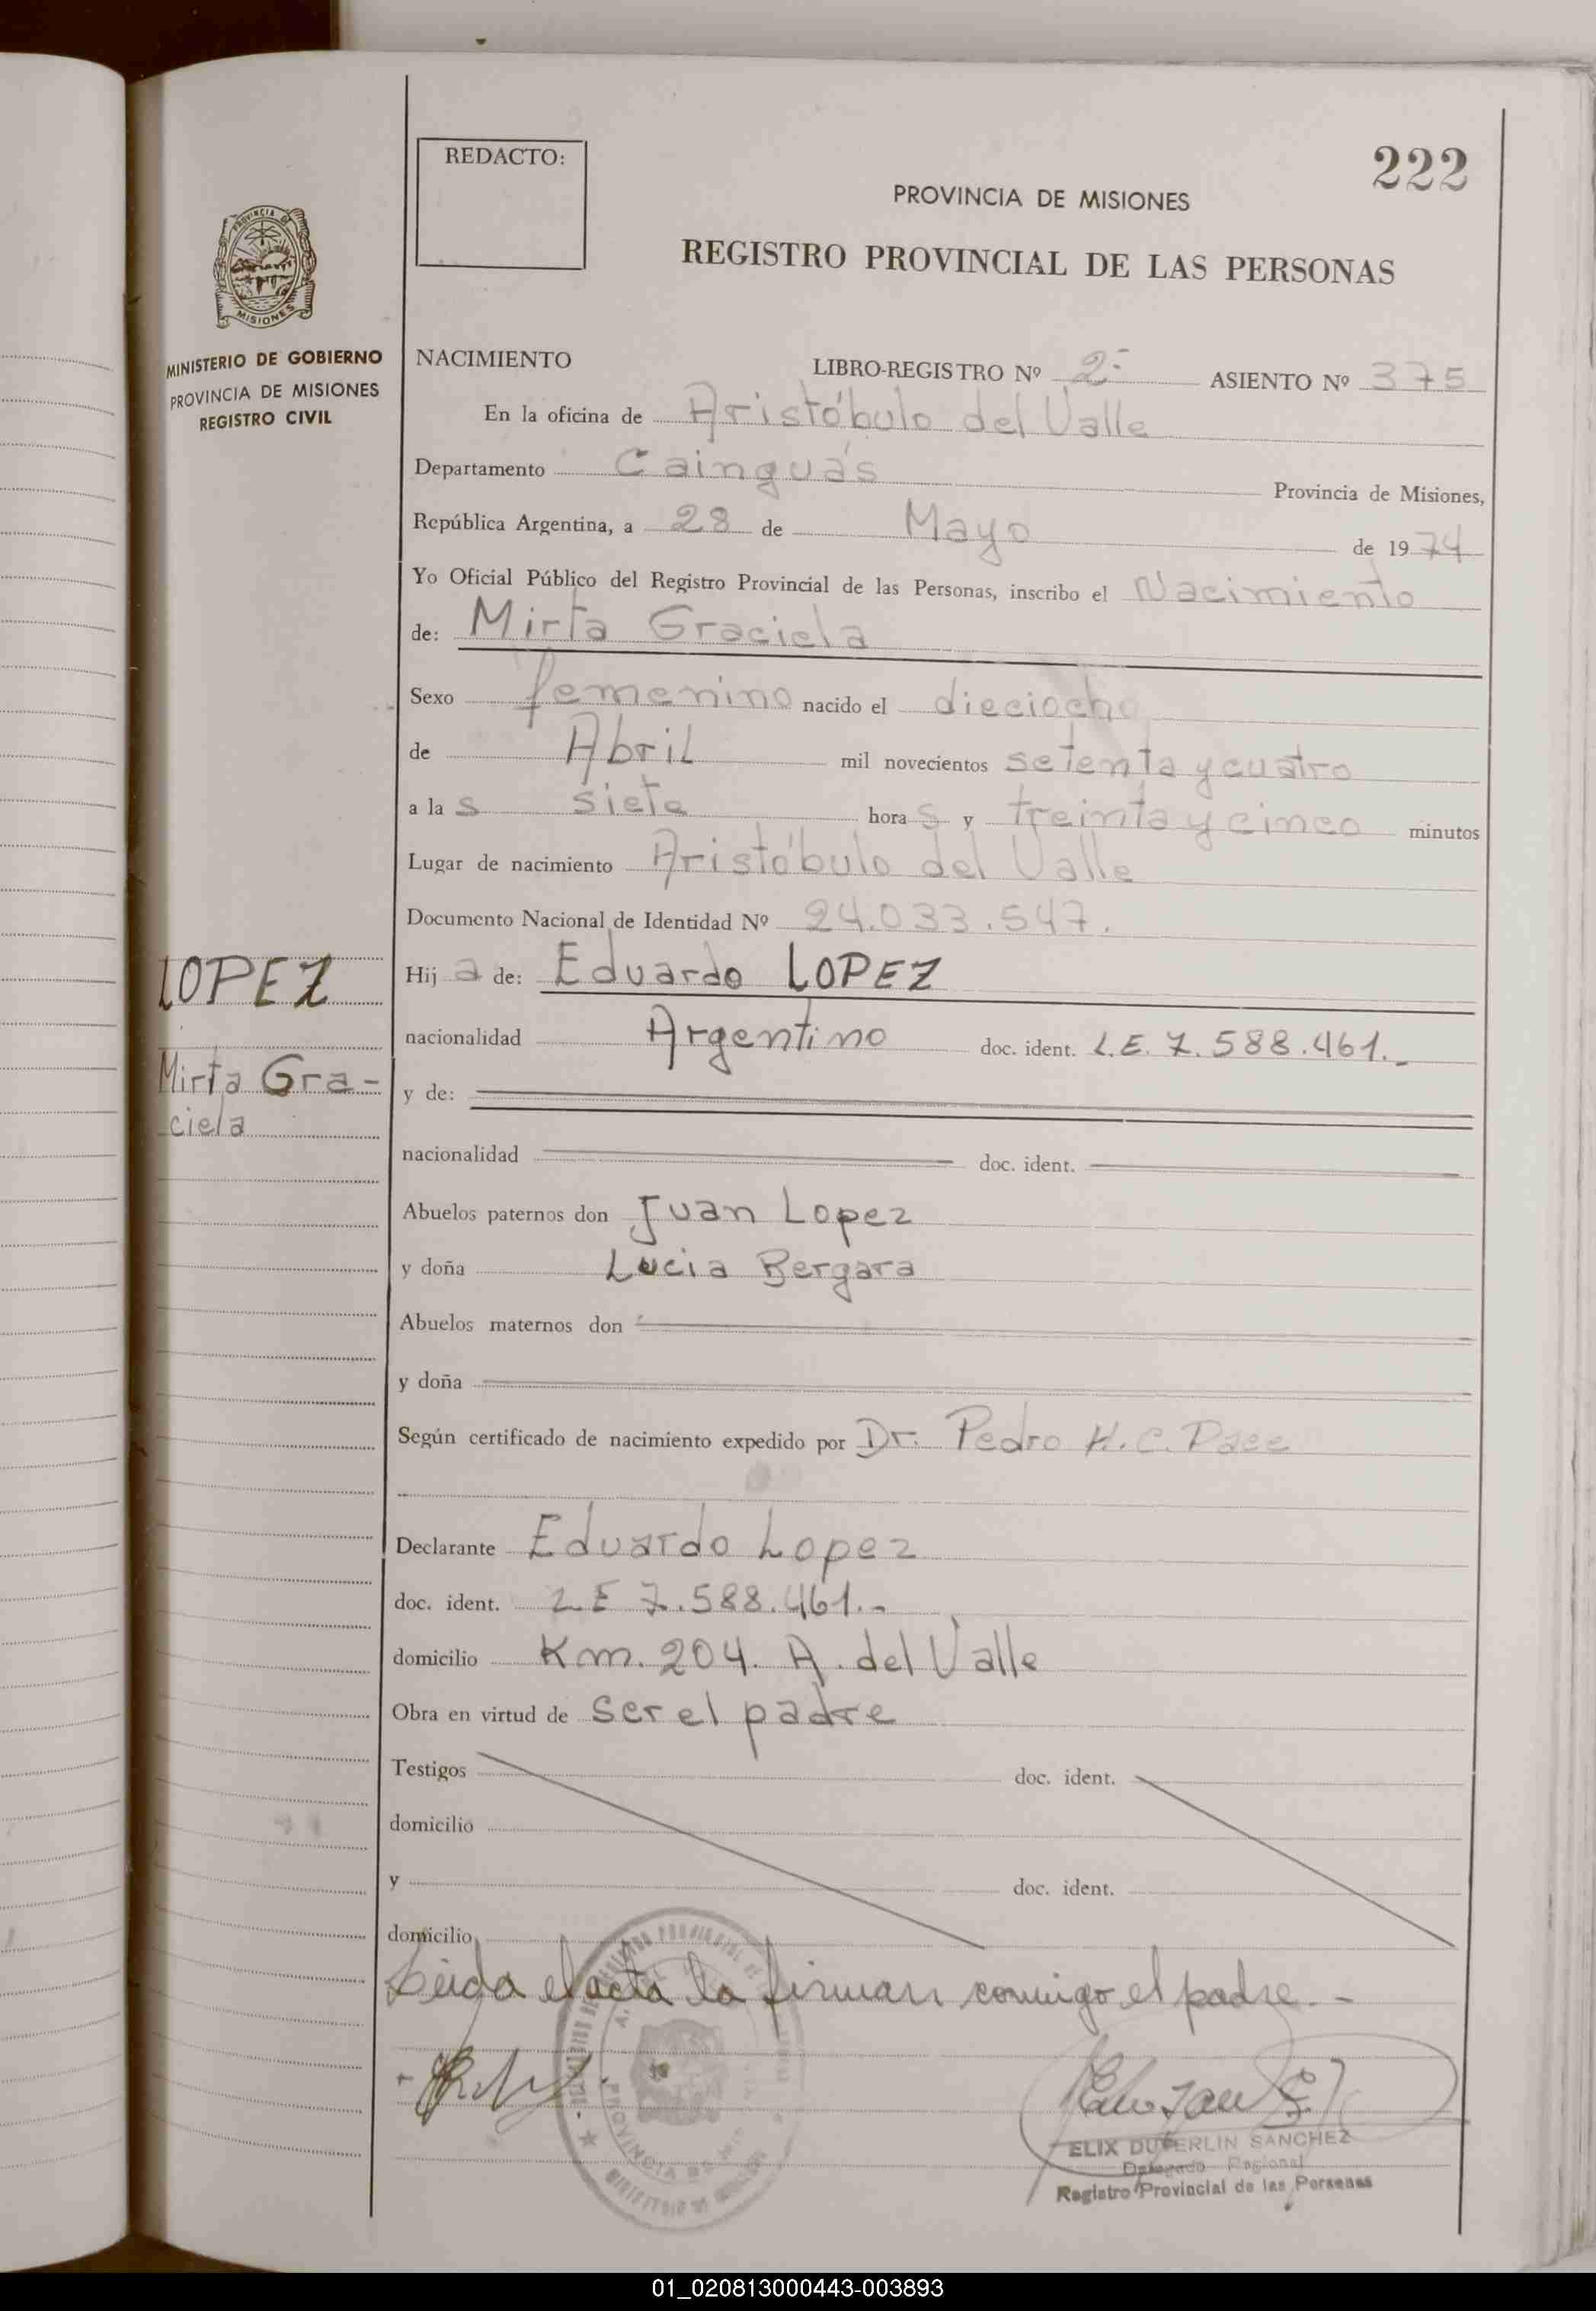 222
REDACTO:
PROVINCIA DE MISIONES
REGISTRO PROVINCIAL DE LAS PERSONAS
PROVINCIA DE
MISIONES
MINISTERIO DE GOBIERNO
PROVINCIA DE MISIONES
REGISTRO CIVIL
NACIMIENTO LIBRO-REGISTRO Nº 2- ASIENTO Nº 375
En la oficina de Aristóbulo del Valle
Departamento Cainguás Provincia de Misiones,
República Argentina, a 28 de Mayo de 1974
Yo Oficial Público del Registro Provincial de las Personas, inscribo el Nacimiento
de: Mirta Graciela
Sexo femenino nacido el dieciocho
de Abril mil novecientos setenta y cuatro
a las siete horas y treinta y cinco minutos
Lugar de nacimiento Aristóbulo del Valle
Documento Nacional de Identidad Nº 24.033.547.
LOPEZ
Mirta Gra-
ciela
Hija de: Eduardo LOPEZ
nacionalidad Argentino doc. ident. L.E. 7.588.461.-
y de:
nacionalidad doc. ident.
Abuelos paternos don Juan Lopez
y doña Lucia Bergara
Abuelos maternos don
y doña
Según certificado de nacimiento expedido por Dr. Pedro H. C. Pace
Declarante Eduardo Lopez
doc. ident. LE 7.588.461.-
domicilio Km. 204. A. del Valle
Obra en virtud de ser el padre
Testigos doc. ident.
domicilio
y doc. ident.
domicilio
Leida el acta la firman conmigo el padre.-
ELIX DUTERLIN SANCHEZ
Delegado Regional
Registro Provincial de las Personas
01_020813000443-003893